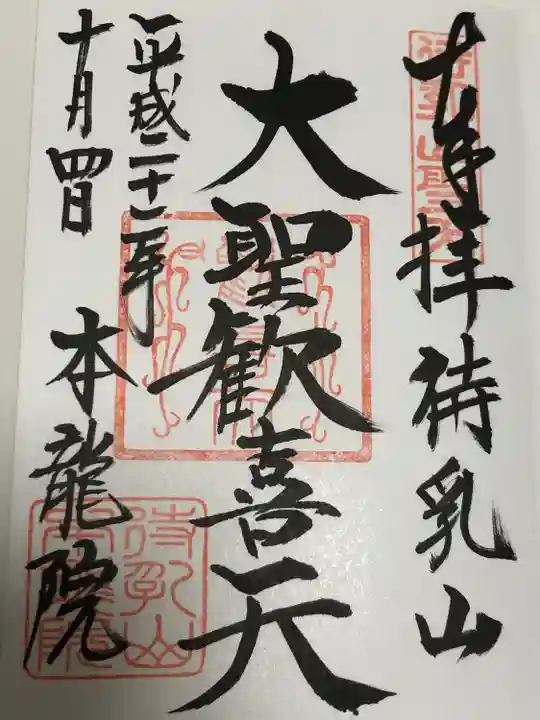 奉拝 待乳山
待乳山聖天
大聖歓喜天
平成二十二年
十月四日
本龍院
待乳山本龍院